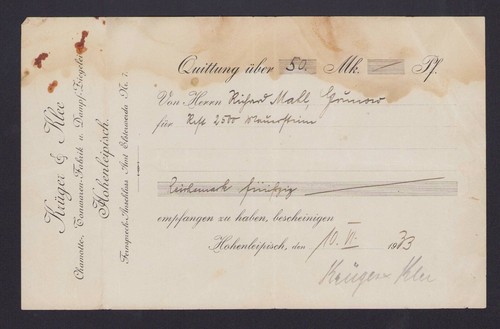 Krüger & Klee
Chamotte-, Tonwaren-Fabrik u. Dampf-Ziegelei
Hohenleipisch.
Fernsprech-Anschluss: Amt Elsterwerda Nr. 7.
Quittung über 50.- Mk. — Pf.
Von Herrn Richard Mall,
für Rest 2500 Mauersteine
Reichsmark fünfzig
empfangen zu haben, bescheinigen
Hohenleipisch, den 10. VI. 1933
Krüger & Klee